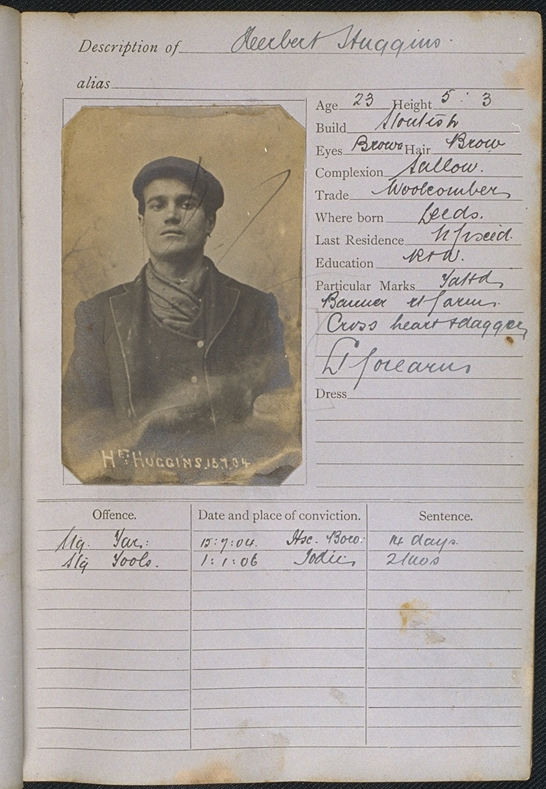 Description of Herbert Huggins.
alias
Age 23 Height 5 : 3
Build Stoutish
Eyes Brown Hair Brow
Complexion Sallow.
Trade Woolcomber
Where born Leeds.
Last Residence
Education R&W.
Particular Marks Tattd
Banner rt farm.
Cross heart & dagger
Lt forearm
Dress
Ht. HUGGINS, 15.7.04
Offence. Date and place of conviction. Sentence.
Stg. 15:7:04 14 days.
Stg Tools. 1:1:06 2 Mos